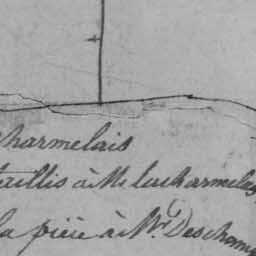 charmelais
taillis à Mr lacharmelais
la pièce à Mr Deschamp